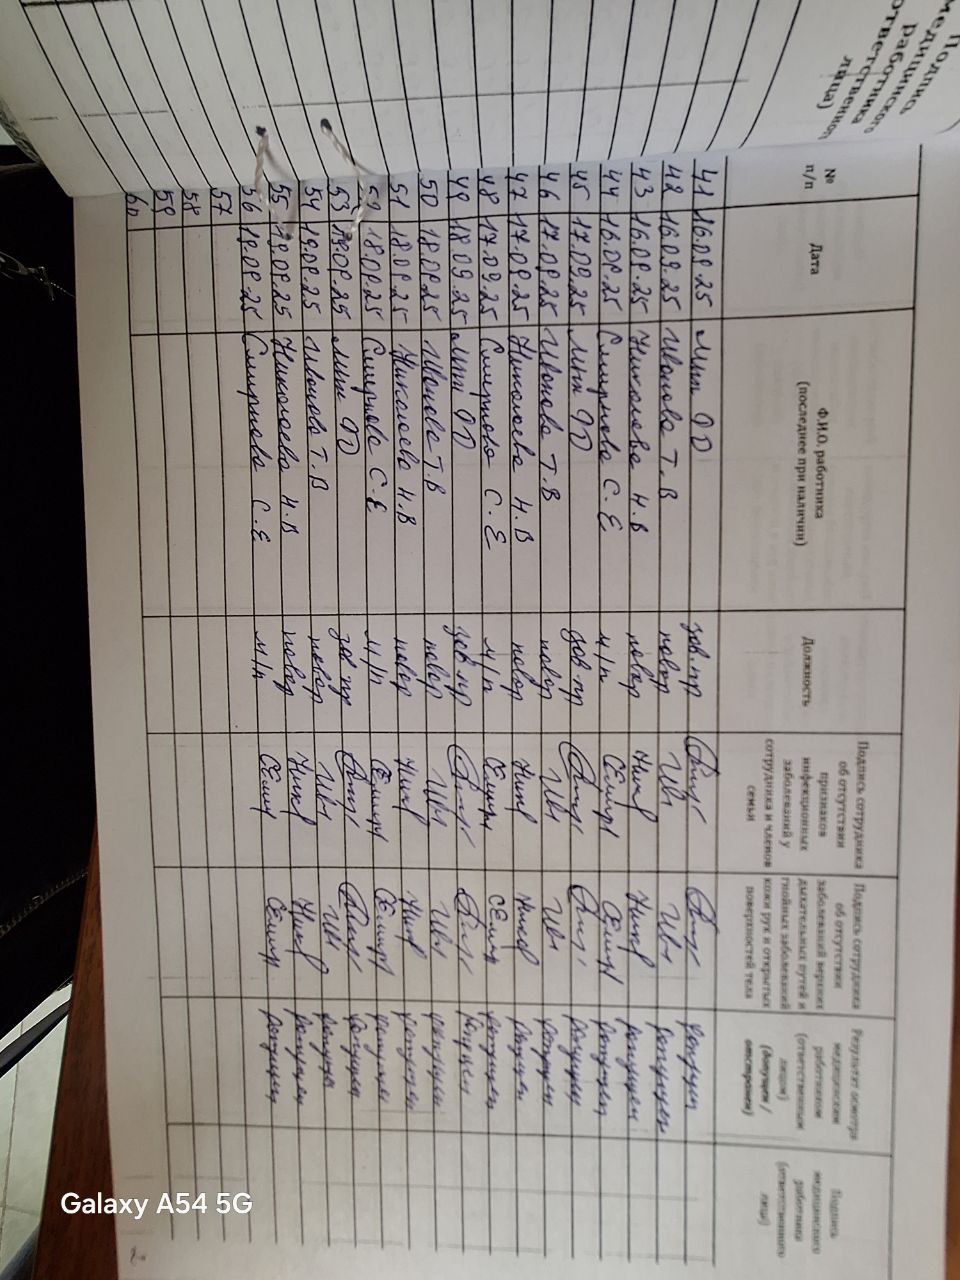 Подпись
медицинского
работника
ответственного
лица)
№ п/п
Дата
Ф.И.О. работника
(последнее при наличии)
Должность
Подпись сотрудника
об отсутствии
признаков
инфекционных
заболеваний у
сотрудника и членов
семьи
Подпись сотрудника
об отсутствии
заболеваний верхних
дыхательных путей и
гнойных заболеваний
кожи рук и открытых
поверхностей тела
Результат осмотра
медицинским
работником
(ответственным
лицом)
(допущен /
отстранен)
Подпись
медицинского
работника
(ответственного
лица)
41 16.09.25 зав.пр допущен
42 16.09.25 Иванова Т.В повар Ив допущен
43 16.09.25 Николаева Н.В повар Ник допущен
44 16.09.25 Смирнова С.Е м/п ССмир допущен
45 17.09.25 зав.пр допущен
46 17.09.25 Иванова Т.В повар Ив допущен
47 17.09.25 Николаева Н.В повар Ник допущен
48 17.09.25 Смирнова С.Е м/п ССмир допущен
49 18.09.25 зав.пр допущен
50 18.09.25 Иванова Т.В повар Ив допущен
51 18.09.25 Николаева Н.В повар Ник допущен
52 18.09.25 Смирнова С.Е м/п ССмир допущен
53 19.09.25 зав.пр допущен
54 19.09.25 Иванова Т.В повар Ив допущен
55 19.09.25 Николаева Н.В повар Ник допущен
56 19.09.25 Смирнова С.Е м/п ССмир допущен
57
58
59
60
Galaxy A54 5G